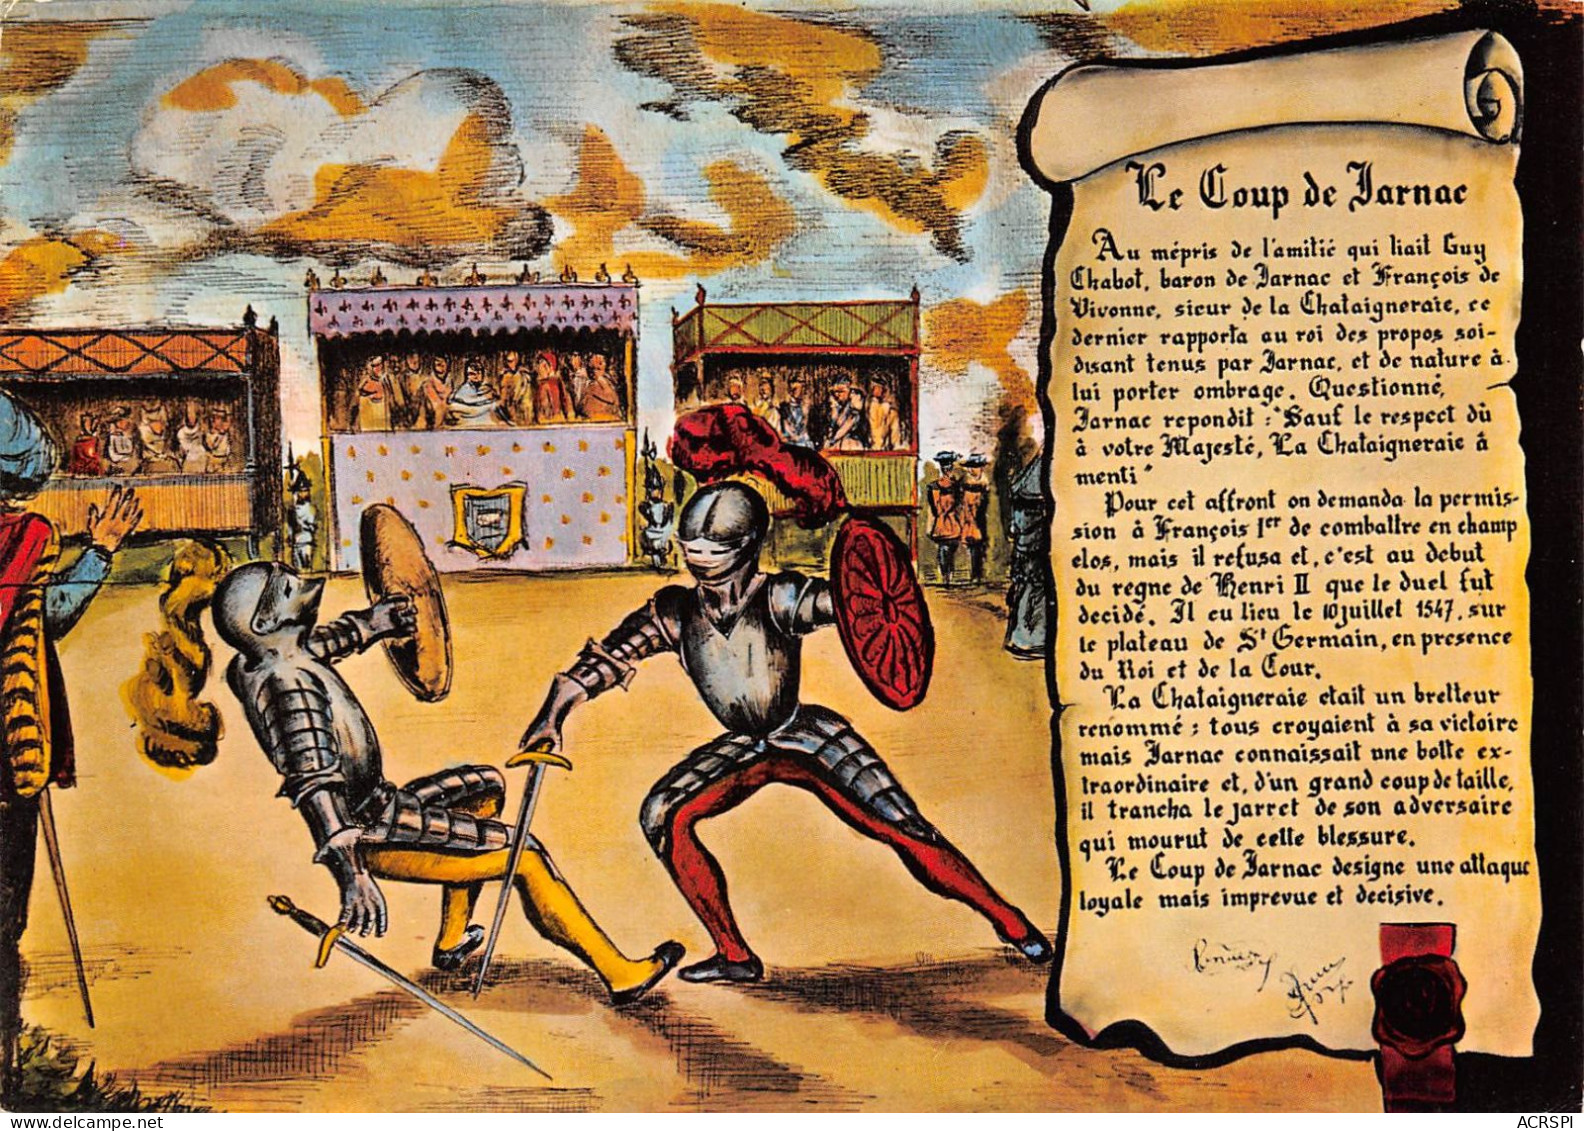 Le Coup de Jarnac
Au mépris de l'amitié qui liait Guy
Chabot, baron de Jarnac et François de
Vivonne, sieur de la Chataigneraie, ce
dernier rapporta au roi des propos soi-
disant tenus par Jarnac, et de nature à
lui porter ombrage. Questionné,
Jarnac repondit : "Sauf le respect dû
à votre Majesté, La Chataigneraie à
menti"
Pour cet affront on demanda la permis-
sion à François 1er de combattre en champ
clos, mais il refusa et, c'est au debut
du regne de Henri II que le duel fut
decidé. Il eu lieu le 10 juillet 1547, sur
le plateau de St Germain, en presence
du Roi et de la Cour.
La Chataigneraie etait un bretteur
renommé ; tous croyaient à sa victoire
mais Jarnac connaissait une botte ex-
traordinaire et, d'un grand coup de taille,
il trancha le jarret de son adversaire
qui mourut de cette blessure.
Le Coup de Jarnac designe une attaque
loyale mais imprevue et decisive.
www.delcampe.net
ACRSPI